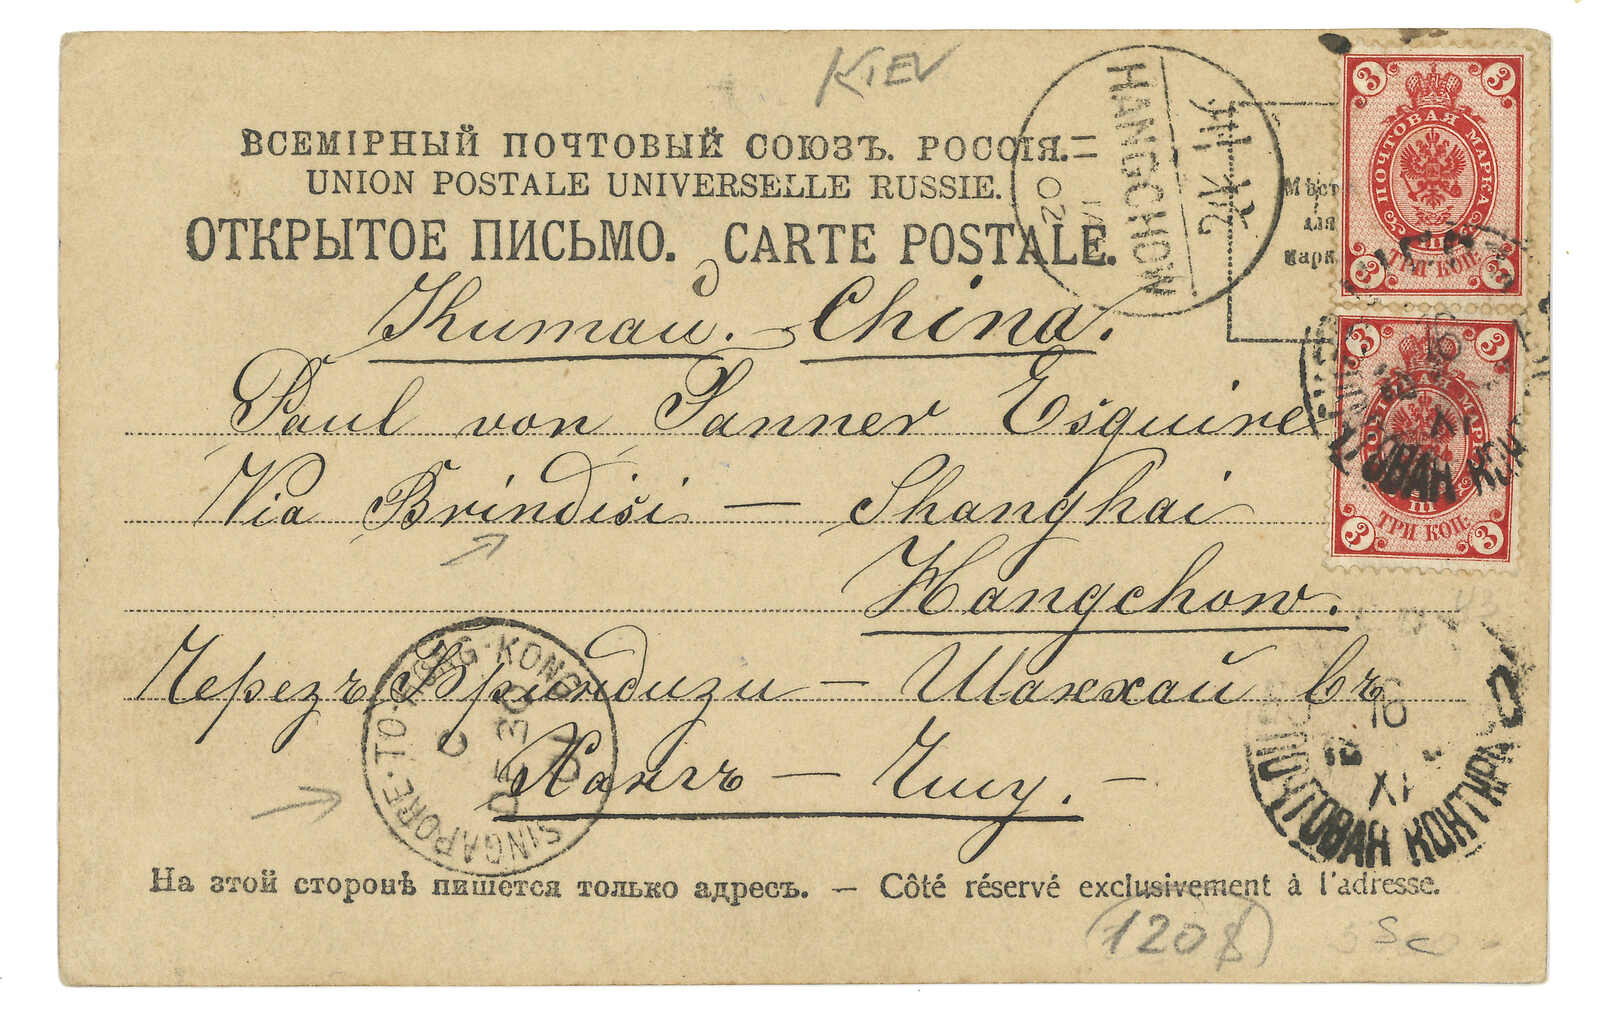 KIEV
ВСЕМІРНЫЙ ПОЧТОВЫЙ СОЮЗЪ. РОССІЯ.
UNION POSTALE UNIVERSELLE RUSSIE.
ОТКРЫТОЕ ПИСЬМО. CARTE POSTALE.
HANGCHOW
11
14
02
杭州
Мѣсто
для
марк
3 3
ПОЧТОВАЯ МАРКА
ТРИ КОП.
3 3
3 3
ТРИ КОП.
3 3
China.
Paul von Tanner Esquire
Via Brindisi — Shanghai
Hangchow.
Черезъ Бриндизи — Шанхай въ
Ханг-Чшу.
SINGAPORE-TO-HONG-KONG
C
DE 30
01
16
XI
ПОЧТОВАЯ КОНТОРА
На этой сторонѣ пишется только адресъ. — Côté réservé exclusivement à l'adresse.
120$